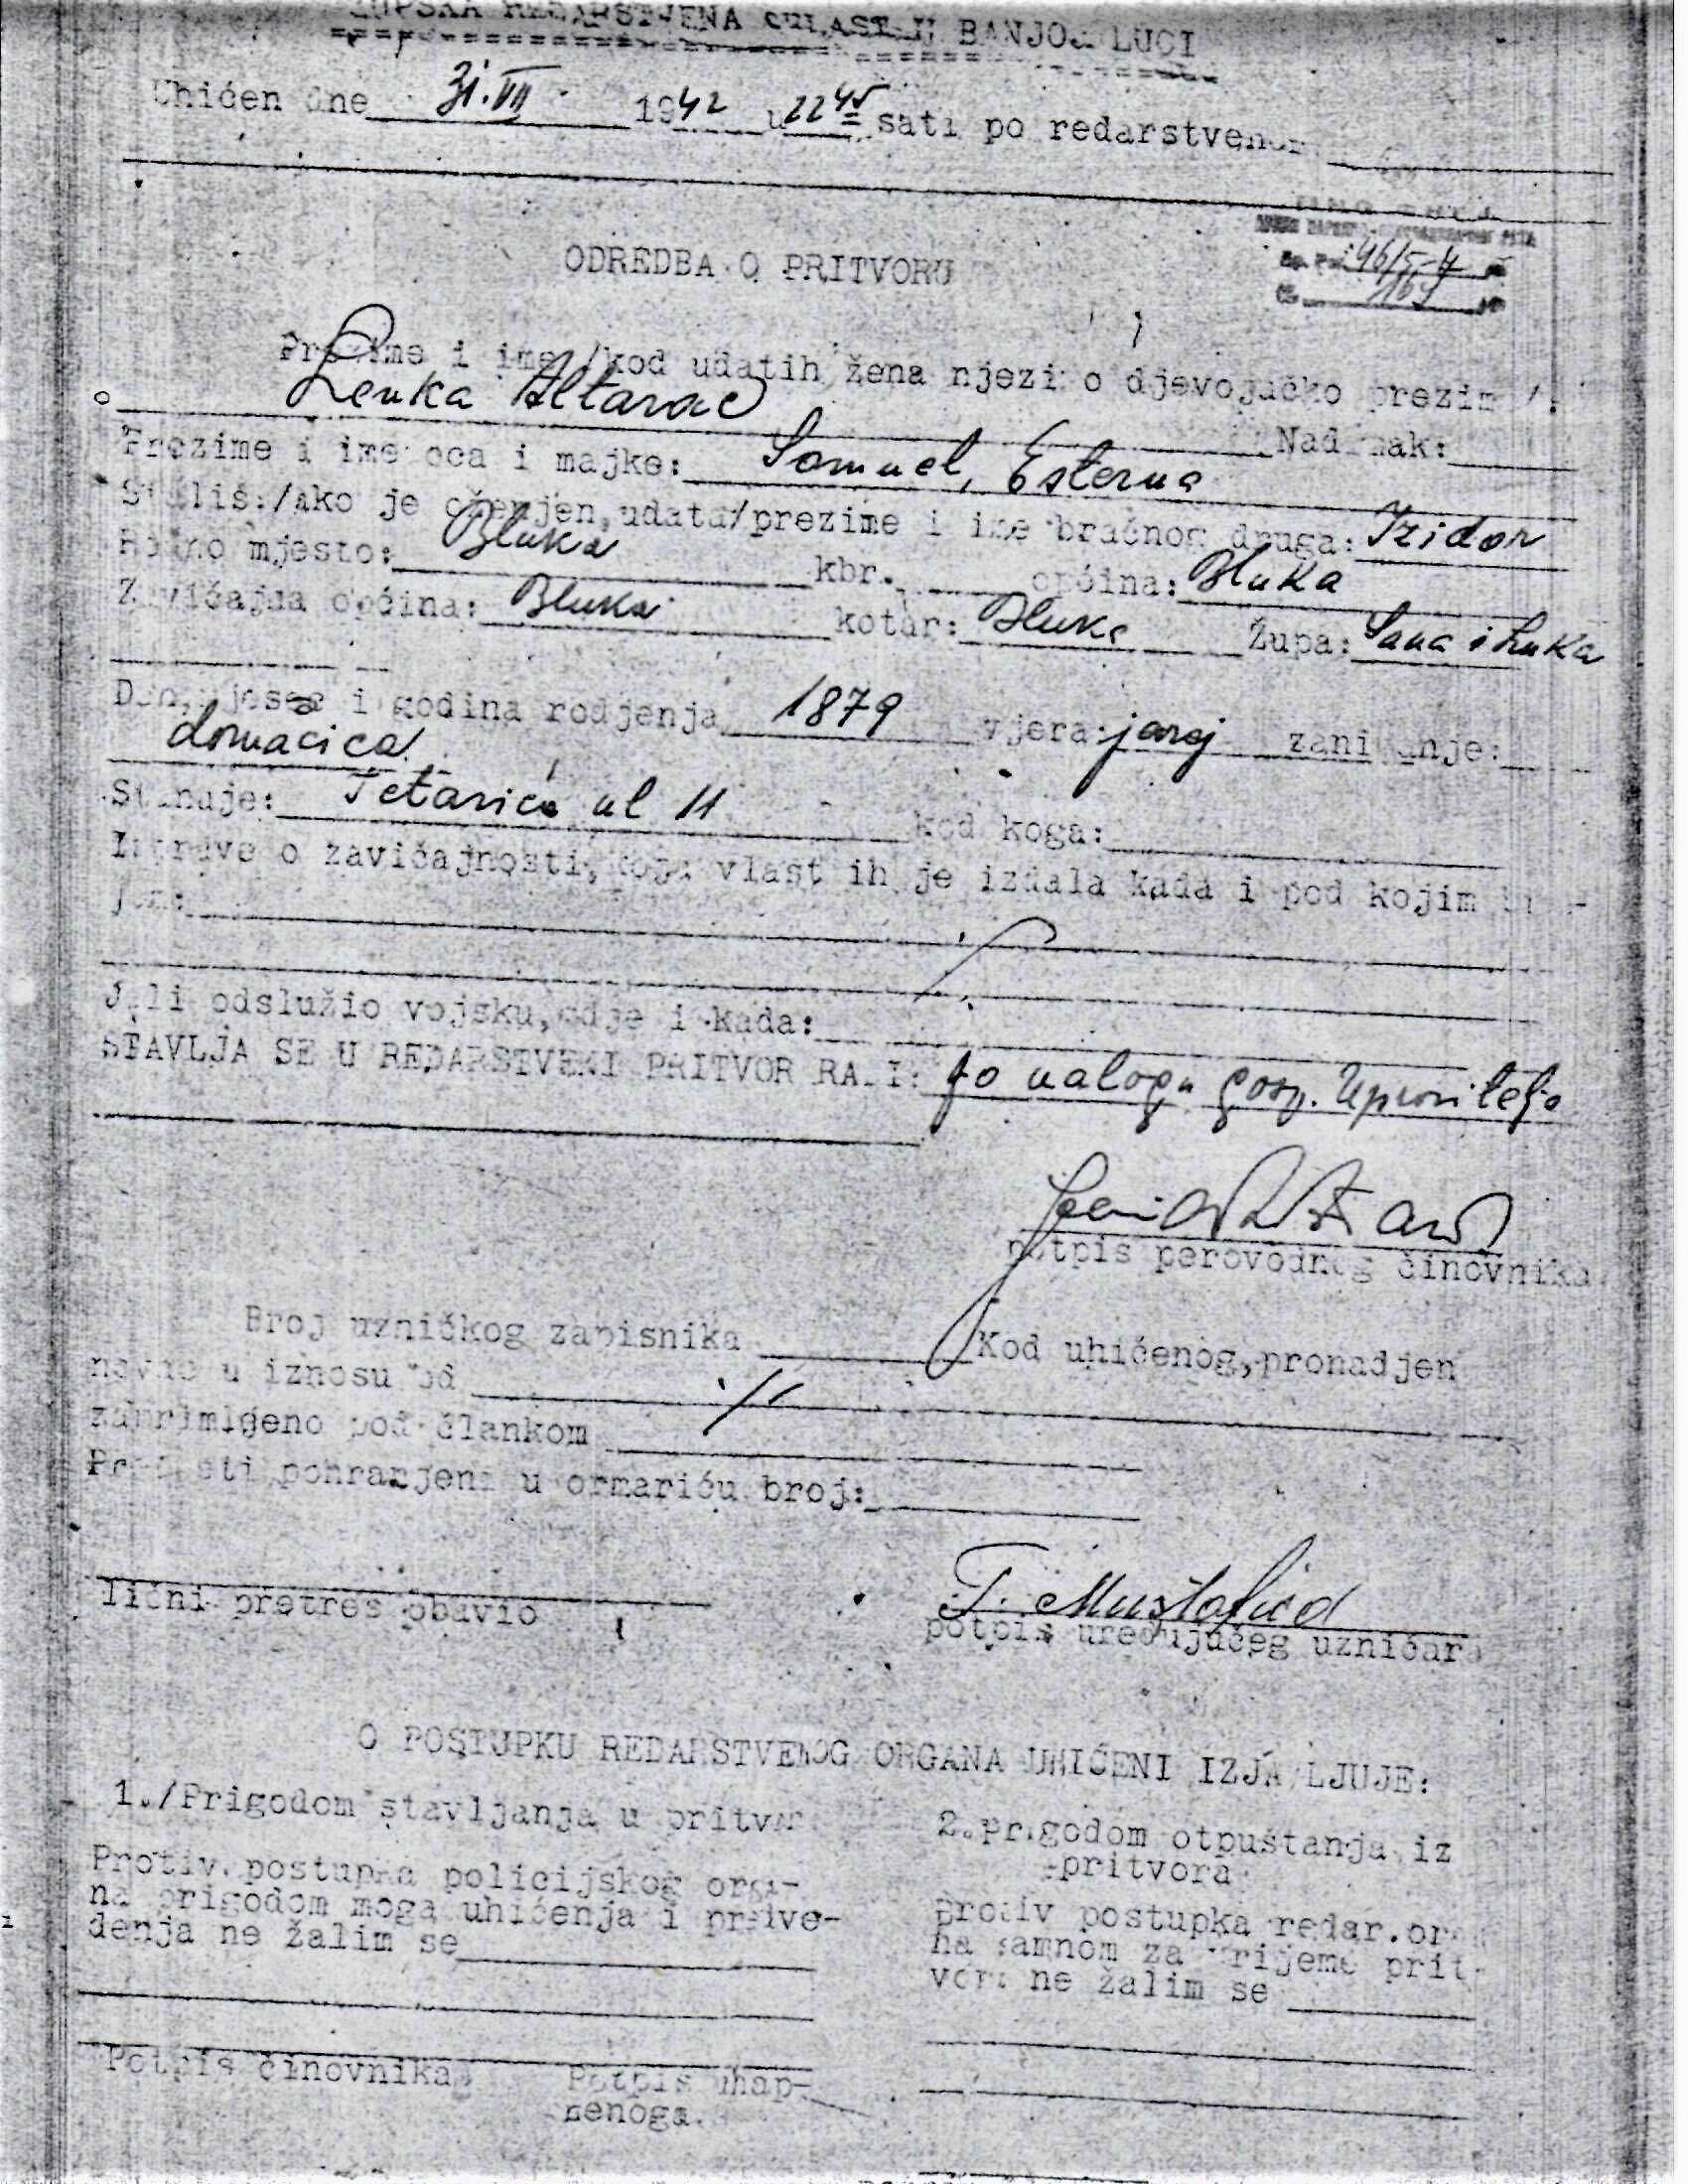 REDARSTVENA OBLAST U BANJOJ LUCI
Uhićen dne 31.VII 1942 u 22 45 sati po redarstvenom
ODREDBA O PRITVORU
Prezime i ime /kod udatih žena njezino djevojačko prezime/:
Lenka Altarac Nadimak:
Prezime i ime oca i majke: Samuel, Esterna
Stališ:/ako je oženjen, udata/prezime i ime bračnog druga: Izidor
Rodno mjesto: Bluka kbr. općina: Bluka
Zavičajna općina: Bluka kotar: Bluka Župa: Sana i Luka
Dan, mjesec i godina rodjenja 1879 vjera: zanimanje:
domaćica
Stanuje: ul 11 kod koga:
Isprave o zavičajnosti, koja vlast ih je izdala kada i pod kojim
jem:
Je li odslužio vojsku, gdje i kada:
STAVLJA SE U REDARSTVENI PRITVOR RADI: po nalogu gosp. Upravitelja
potpis perovodnog činovnika
Broj uzničkog zapisnika Kod uhićenog, pronadjen
novac u iznosu od
pod člankom
Predmeti pohranjeni u ormariću broj:
lični pretres obavio
potpis uredujućeg uzničara
O POSTUPKU REDARSTVENOG ORGANA UHIĆENI IZJAVLJUJE:
1./Prigodom stavljanja u pritvor
2.prigodom otpuštanja iz
pritvora
Protiv postupka policijskog orga-
na prigodom moga uhićenja i prive-
denja ne žalim se
Protiv postupka redar.or
na samnom za vrijeme prit-
vora ne žalim se
Potpis činovnika Potpis uhap-
šenoga.